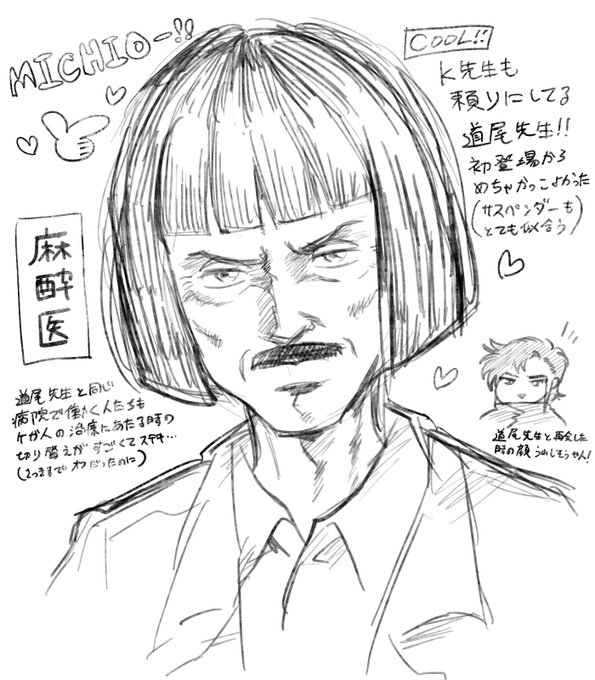 MICHIOー!!
COOL!!
K先生も
頼りにしてる
道尾先生!!
初登場から
めちゃかっこよかった
(サスペンダーも
とても似合う)
麻
酔
医
道尾先生と同じ
病院で働く人たちも
ケが人の治療にあたる時の
切り替えがすごくてステキ…
(さっきまで
道尾先生と再会した
時の顔 うれしそうやん!